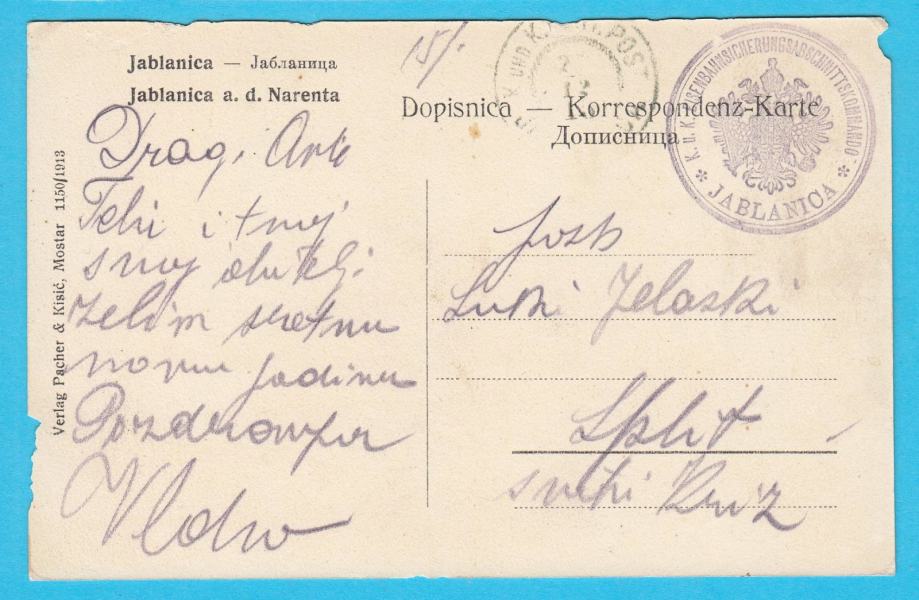 Jablanica — Јабланица
Jablanica a. d. Narenta
15/.
UND K. POST
K. u. K. EISENBAHNSICHERUNGSABSCHNITTSKOMMANDO
* JABLANICA *
Dopisnica — Korrespondenz-Karte
Дописница
Verlag Pacher & Kisić, Mostar 1150/1913
Dragi Ante
Tebi i tvoj
svoj obitelji
želim sretnu
novu godinu
Pozdravlja
Vlaho
Luki Jelaski
Split
sveti Križ